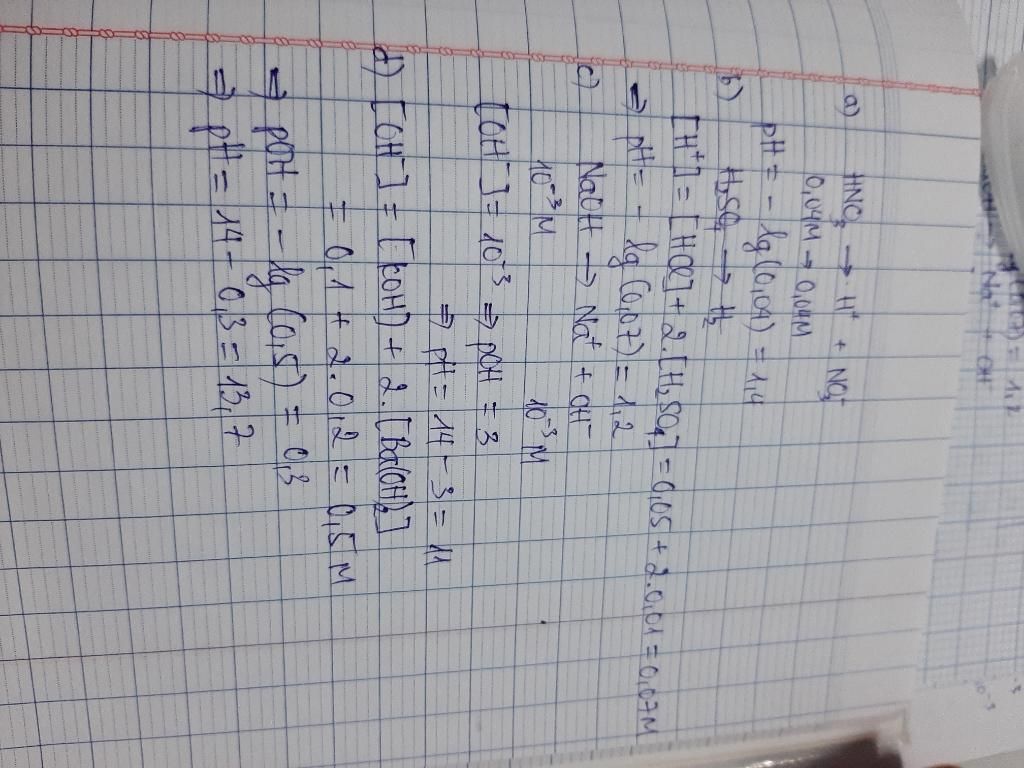 a) HNO₃ → H⁺ + NO₃⁻
0,04M → 0,04M
pH = - lg(0,04) = 1,4
b) H₂SO₄ → H₂
[H⁺] = [HCl] + 2.[H₂SO₄] = 0,05 + 2.0,01 = 0,07M
⇒ pH = - lg(0,07) = 1,2
c) NaOH → Na⁺ + OH⁻
10⁻³M 10⁻³M
[OH⁻] = 10⁻³ ⇒ pOH = 3
⇒ pH = 14 - 3 = 11
d) [OH⁻] = [KOH) + 2.[Ba(OH)₂]
= 0,1 + 2.0,2 = 0,5M
⇒ pOH = - lg(0,5) = 0,3
⇒ pH = 14 - 0,3 = 13,7
) = 1,2
Na⁺ + OH